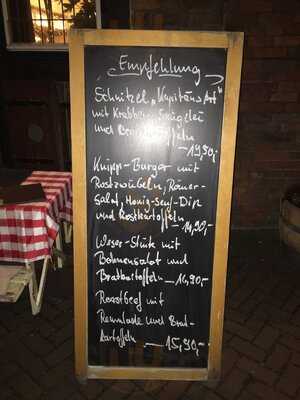 Empfehlung
Schnitzel „Kapitäns Art"
mit Krabben, Spiegelei
und Bratkartoffeln
—19,90,-
Knipp-Burger mit
Röstzwiebeln, Römer-
salat, Honig-Senf-Dip
und Röstkartoffeln
—14,90,-
Weser-Stute mit
Bohnensalat und
Bratkartoffeln —14,90,-
Roastbeef mit
Remulade und Brat-
kartoffeln —15,90,-